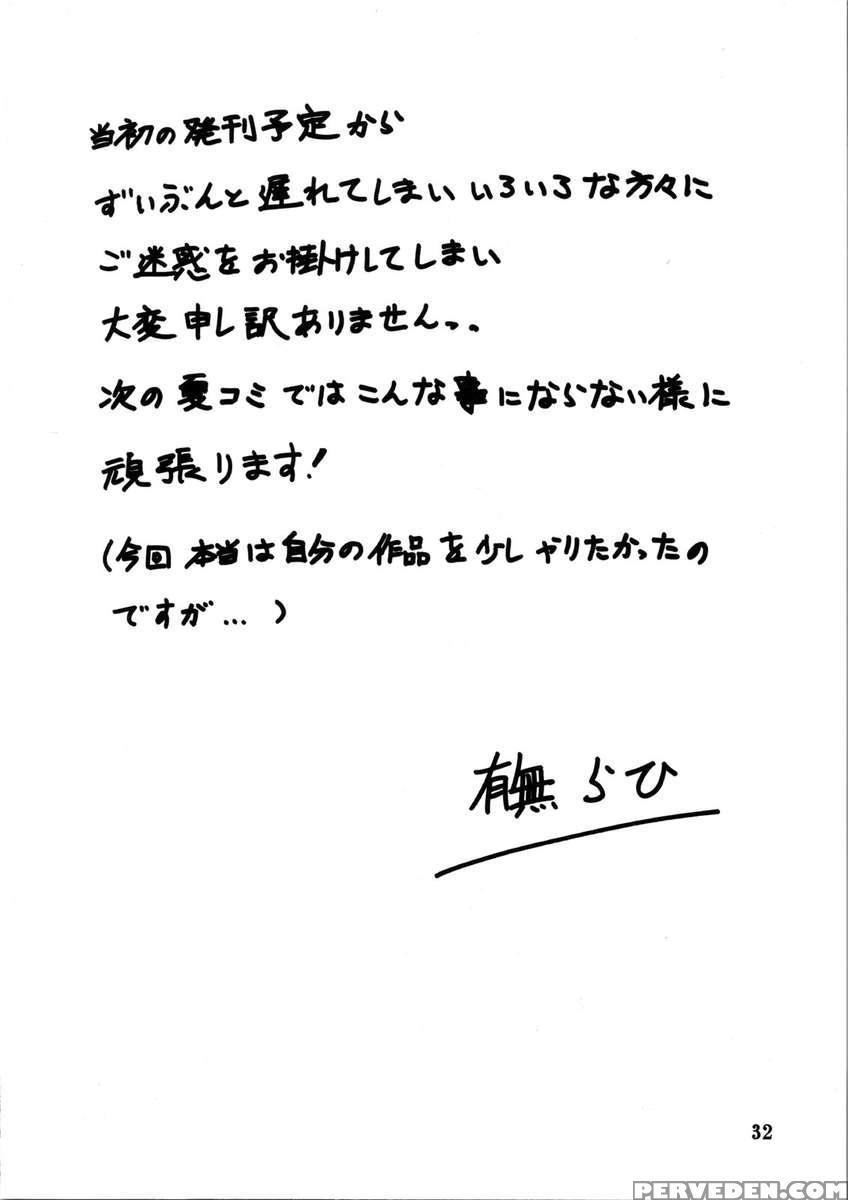 当初の発刊予定から
ずいぶんと遅れてしまい いろいろな方々に
ご迷惑をお掛けしてしまい
大変申し訳ありませんっ。
次の夏コミではこんな事にならない様に
頑張ります!
(今回本当は自分の作品を少しやりたかったの
ですが…)
有無らひ
32
PERVEDEN.COM